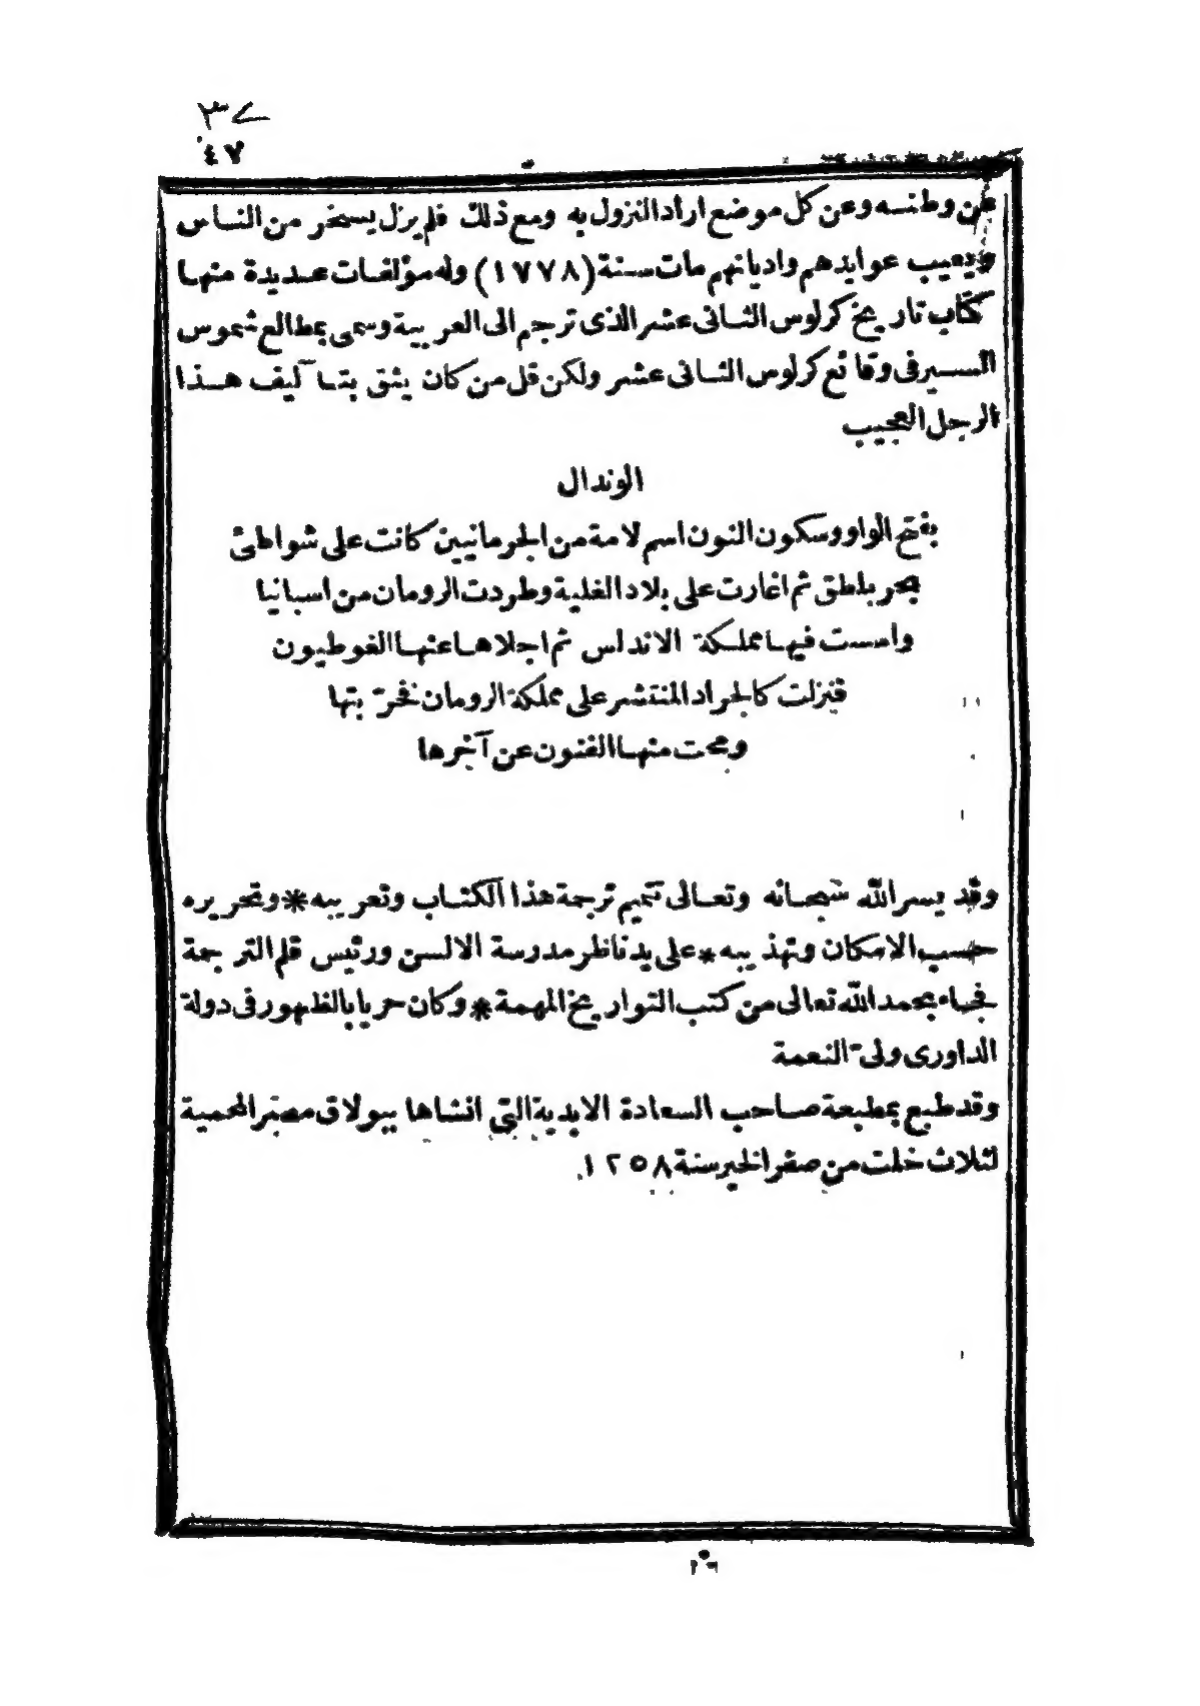 ٤٧
عن وطنه وعن كل موضع اراد النزول به ومع ذلك فلم يزل يسخر من الناس
ويعيب عوايدهم واديانهم مات سنة (١٧٧٨) وله مؤلفات عديدة منها
كتاب تاريخ كرلوس الثانى عشر الذى ترجم الى العربية وسمى بمطالع شموس
السير فى وقائع كرلوس الثانى عشر ولكن قل من كان يثق بتآليف هذا
الرجل العجيب
الوندال
بفتح الواو وسكون النون اسم لامة من الجرمانيين كانت على شواطئ
بحر بلطق ثم اغارت على بلاد الغلية وطردت الرومان من اسبانيا
واسست فيها مملكة الاندلس ثم اجلاها عنها الغوطيون
فنزلت كالجراد المنتشر على مملكة الرومان فخرّبتها
ومحت منها الفنون عن آخرها
وقد يسر الله سبحانه وتعالى تتميم ترجمة هذا الكتاب وتعريبه * وتحريره
حسب الامكان وتهذيبه * على يد ناظر مدرسة الالسن ورئيس قلم الترجمة
فجاء بحمد الله تعالى من كتب التواريخ المهمة * وكان حريا بالظهور فى دولة
الداورى ولى النعمة
وقد طبع بمطبعة صاحب السعادة الابدية التى انشاها ببولاق مصر المحمية
لثلاث خلت من صفر الخير سنة ١٢٥٨